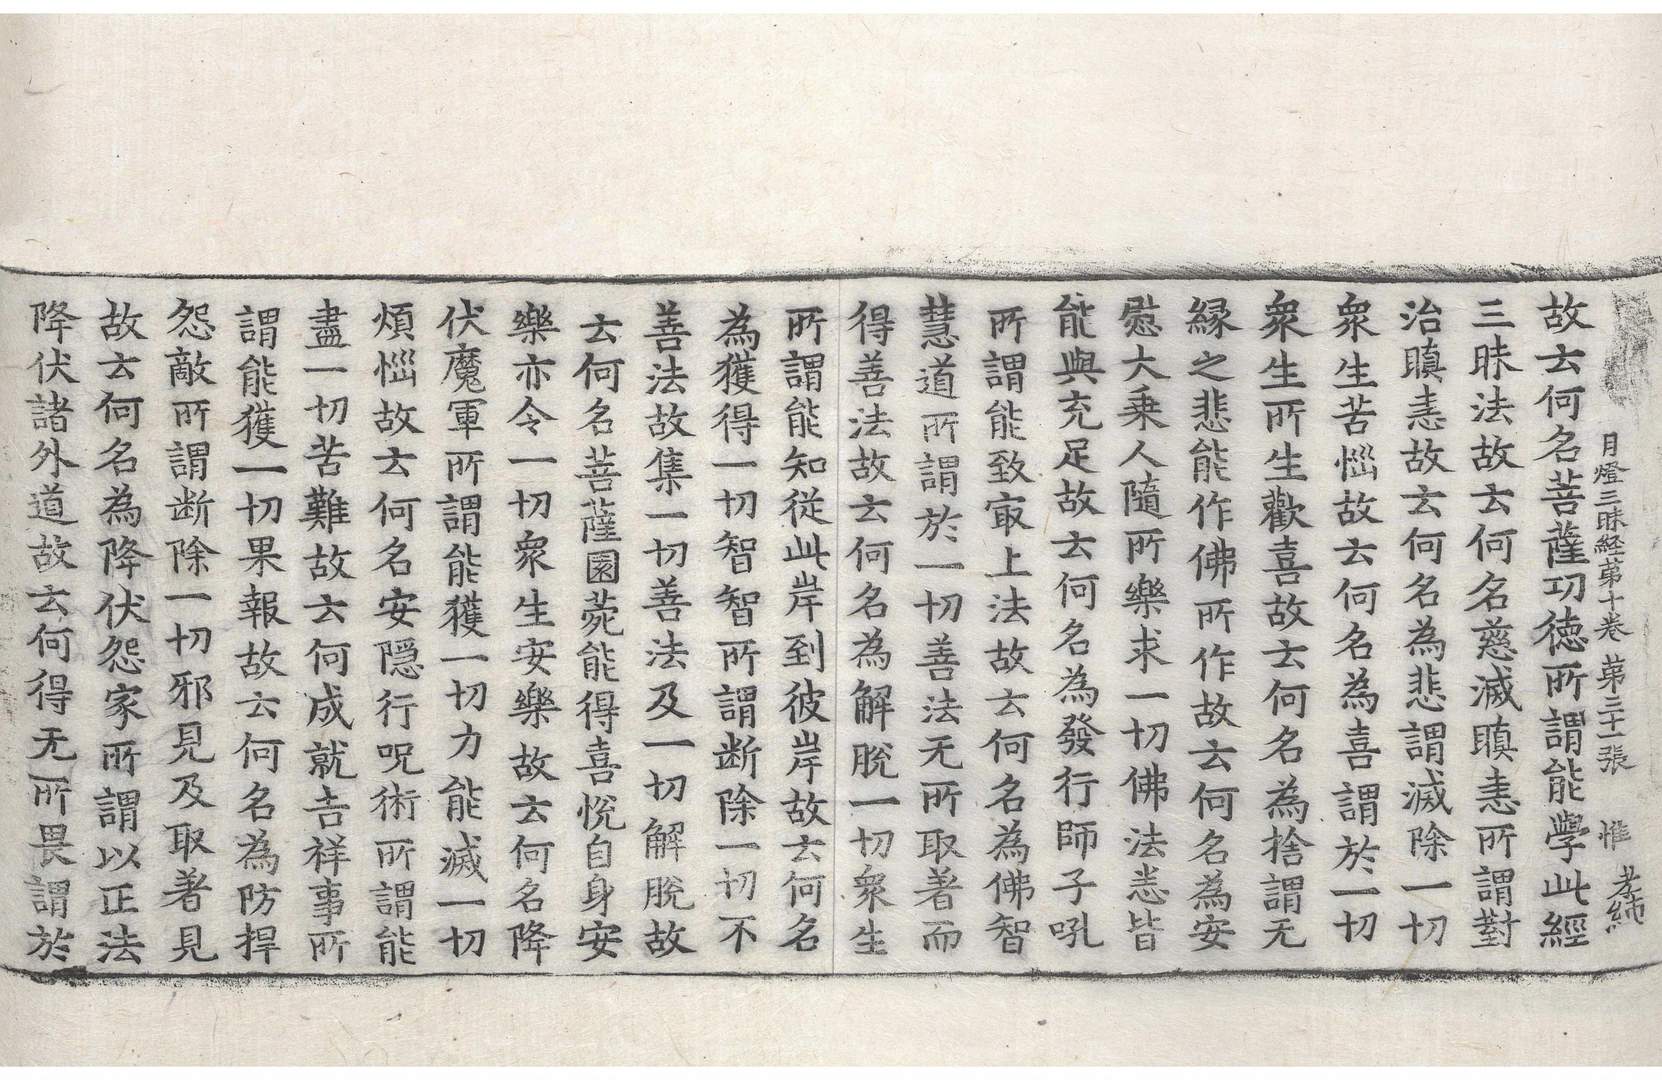 月燈三昧経第十卷 第三十一張 惟 孝緕
故云何名菩薩功徳所謂能學此經
三昧法故云何名慈滅瞋恚所謂對
治瞋恚故云何名為悲謂滅除一切
衆生苦惱故云何名為喜謂於一切
衆生所生歡喜故云何名為捨謂无
縁之悲能作佛所作故云何名為安
慰大乗人隨所樂求一切佛法悉皆
能與充足故云何名為發行師子吼
所謂能致㝡上法故云何名為佛智
慧道所謂於一切善法无所取著而
得善法故云何名為解脫一切衆生
所謂能知從此岸到彼岸故云何名
為獲得一切智智所謂断除一切不
善法故集一切善法及一切解脫故
云何名菩薩園菀能得喜恱自身安
樂亦令一切衆生安樂故云何名降
伏魔軍所謂能獲一切力能滅一切
煩惱故云何名安隱行呪術所謂能
盡一切苦難故云何成就吉祥事所
謂能獲一切果報故云何名為防捍
怨敵所謂断除一切邪見及取著見
故云何名為降伏怨家所謂以正法
降伏諸外道故云何得无所畏謂於